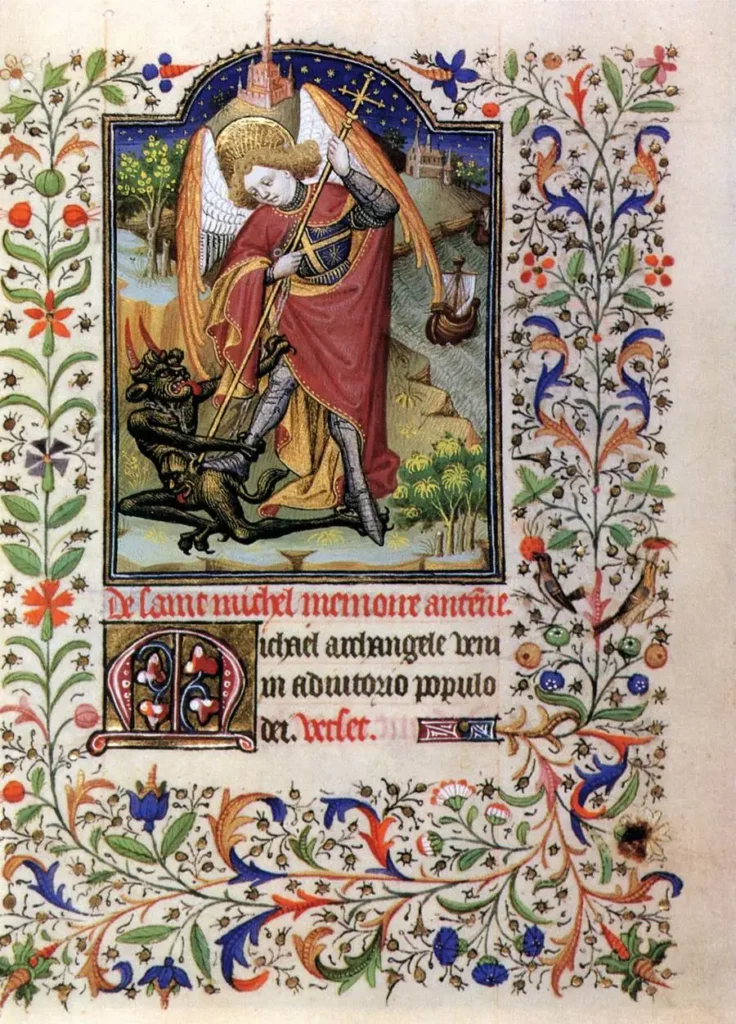 De saint michel memoire antene.
Michael archangele veni
in adiutorio populo
dei. Verset.